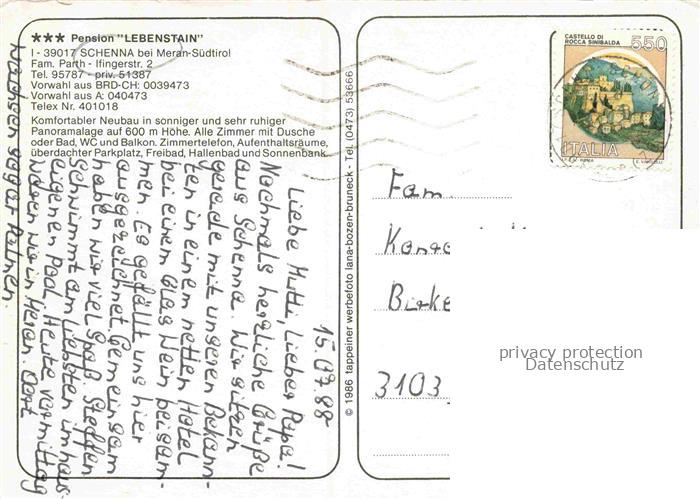 ★★★ Pension "LEBENSTAIN"
I - 39017 SCHENNA bei Meran-Südtirol
Fam. Parth - Ifingerstr. 2
Tel. 95787 - priv. 51387
Vorwahl aus BRD-CH: 0039473
Vorwahl aus A: 040473
Telex Nr. 401018
Komfortabler Neubau in sonniger und sehr ruhiger
Panoramalage auf 600 m Höhe. Alle Zimmer mit Dusche
oder Bad, WC und Balkon. Zimmertelefon, Aufenthaltsräume,
überdachter Parkplatz, Freibad, Hallenbad und Sonnenbank.
15.07.88
Liebe Mutti, Lieber Papa!
Nochmals herzliche Grüße
aus Schenna. Wir sitzen
gerade mit unseren Bekann-
ten in einem netten Hotel
bei einem Glas Wein beisam-
men. Es gefällt uns hier
ausgezeichnet. Gemeinsam
haben wir viel Spaß. Steffen
schwimmt am Liebsten im haus-
eigenen Pool. Heute vormittag
waren wir in Meran. Dort
wachsen sogar Palmen.
© 1986 tappeiner werbefoto lana-bozen-bruneck - Tel. (0473) 53666
CASTELLO DI
ROCCA SINIBALDA
550
ITALIA
Fam.
Birke
3103
privacy protection
Datenschutz